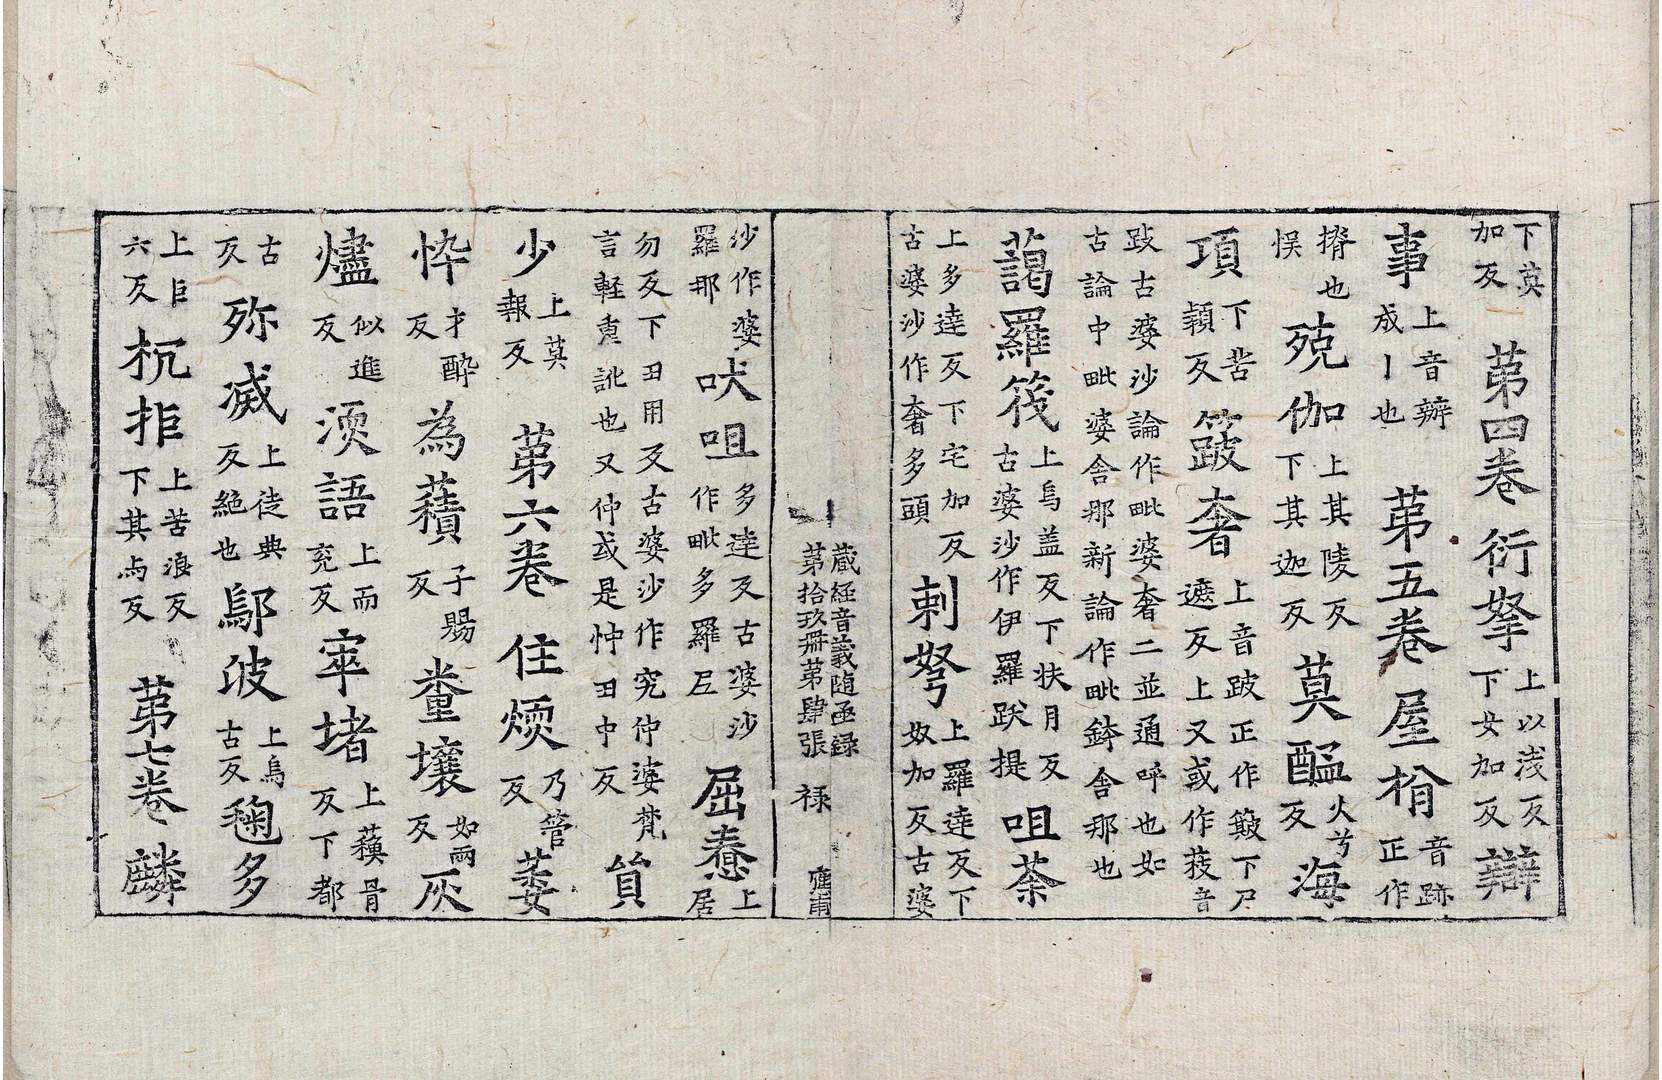 下莫加反　第四卷　衍拏上以淺反下女加反　辯
事上音辦成丨也　第五卷　屋㮞音跡正作
揹也悞　殑伽上其陵反下其迦反　莫醯火兮反　海
項下苦頴反　䇑奢上音跛正作簸下尸遮反上又或作䒦音
跛古婆沙論作毗婆奢二並通呼也如古論中毗婆舍那新論作毗鉢舍那也
藹羅筏上烏盖反下扶月反古婆沙作伊羅跋提　咀荼
上多達反下宅加反古婆沙作奢多頭　剌弩上羅達反下奴加反古婆
蔵経音義随函録
第拾玖冊第肆張　禄　應甫
沙作婆羅那　吠咀多達反古婆沙作毗多羅尼　屈惷上居
勿反下丑用反古婆沙作究仲婆梵言軽重訛也又仲或是忡丑中反　貟
少上莫報反　第六卷　住煗乃管反　萎
忰才醉反　為積子賜反　糞壤如兩反　灰
燼似進反　渜語上而兖反　窣堵上蘇骨反下都
古反　殄滅上徒典反絶也　鄔波上烏古反　毱多
上巨六反　杭拒上苦浪反下其与反　第七卷　麟